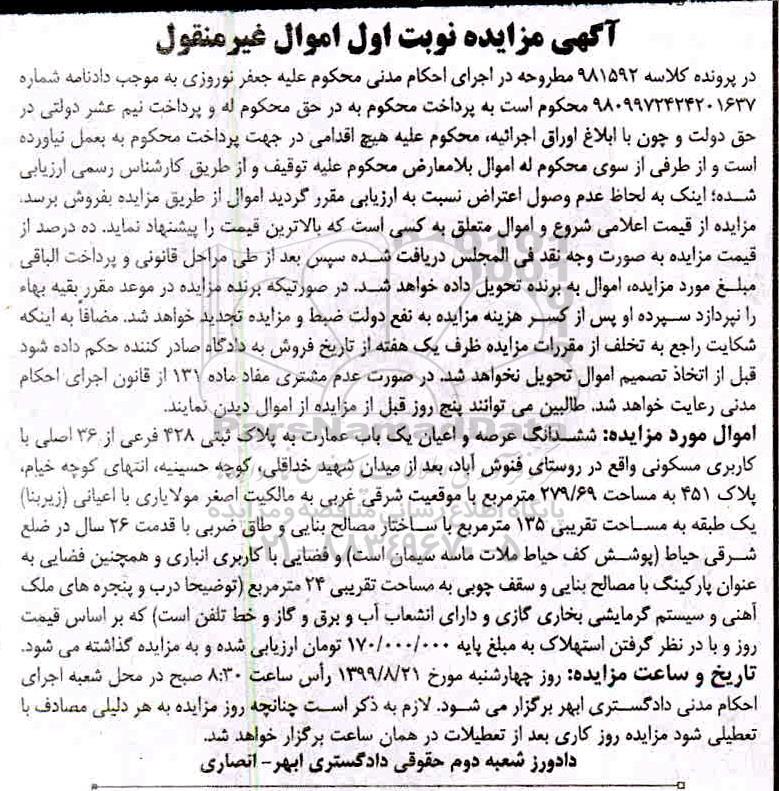 آگهی مزایده نوبت اول اموال غیرمنقول
در پرونده کلاسه ۹۸۱۵۹۲ مطروحه در اجرای احکام مدنی محکوم علیه جعفر نوروزی به موجب دادنامه شماره
۹۸۰۹۹۷۲۴۲۴۲۰۱۶۳۷ محکوم است به پرداخت محکوم به در حق محکوم له و پرداخت نیم عشر دولتی در
حق دولت و چون با ابلاغ اوراق اجرائیه، محکوم علیه هیچ اقدامی در جهت پرداخت محکوم به بعمل نیاورده
است و از طرفی از سوی محکوم له اموال بلامعارض محکوم علیه توقیف و از طریق کارشناس رسمی ارزیابی
شده؛ اینک به لحاظ عدم وصول اعتراض نسبت به ارزیابی مقرر گردید اموال از طریق مزایده بفروش برسد.
مزایده از قیمت اعلامی شروع و اموال متعلق به کسی است که بالاترین قیمت را پیشنهاد نماید. ده درصد از
قیمت مزایده به صورت وجه نقد فی المجلس دریافت شده سپس بعد از طی مراحل قانونی و پرداخت الباقی
مبلغ مورد مزایده، اموال به برنده تحویل داده خواهد شد. در صورتیکه برنده مزایده در موعد مقرر بقیه بهاء
را نپردازد سپرده او پس از کسر هزینه مزایده به نفع دولت ضبط و مزایده تجدید خواهد شد. مضافاً به اینکه
شکایت راجع به تخلف از مقررات مزایده ظرف یک هفته از تاریخ فروش به دادگاه صادر کننده حکم داده شود
قبل از اتخاذ تصمیم اموال تحویل نخواهد شد. در صورت عدم مشتری مفاد ماده ۱۳۱ از قانون اجرای احکام
مدنی رعایت خواهد شد. طالبین می توانند پنج روز قبل از مزایده از اموال دیدن نمایند.
اموال مورد مزایده: ششدانگ عرصه و اعیان یک باب عمارت به پلاک ثبتی ۴۲۸ فرعی از ۳۶ اصلی با
کاربری مسکونی واقع در روستای قنوش آباد، بعد از میدان شهید خداقلی، کوچه حسینیه، انتهای کوچه خیام،
پلاک ۴۵۱ به مساحت ۲۷۹/۶۹ مترمربع با موقعیت شرقی غربی به مالکیت اصغر مولایاری با اعیانی (زیربنا)
یک طبقه به مساحت تقریبی ۱۳۵ مترمربع با ساختار مصالح بنایی و طاق ضربی با قدمت ۲۶ سال در ضلع
شرقی حیاط (پوشش کف حیاط ملات ماسه سیمان است) و فضایی با کاربری انباری و همچنین فضایی به
عنوان پارکینگ با مصالح بنایی و سقف چوبی به مساحت تقریبی ۲۴ مترمربع (توضیحا درب و پنجره های ملک
آهنی و سیستم گرمایشی بخاری گازی و دارای انشعاب آب و برق و گاز و خط تلفن است) که بر اساس قیمت
روز و با در نظر گرفتن استهلاک به مبلغ پایه ۱۷۰/۰۰۰/۰۰۰ تومان ارزیابی شده و به مزایده گذاشته می شود.
تاریخ و ساعت مزایده: روز چهارشنبه مورخ ۱۳۹۹/۸/۲۱ رأس ساعت ۸:۳۰ صبح در محل شعبه اجرای
احکام مدنی دادگستری ابهر برگزار می شود. لازم به ذکر است چنانچه روز مزایده به هر دلیلی مصادف با
تعطیلی شود مزایده روز کاری بعد از تعطیلات در همان ساعت برگزار خواهد شد.
دادورز شعبه دوم حقوقی دادگستری ابهر- انصاری
ParsNamadData
پایگاه اطلاع رسانی مناقصه و مزایده
۰۲۱-۸۸۳۴۹۶۷۰-۵